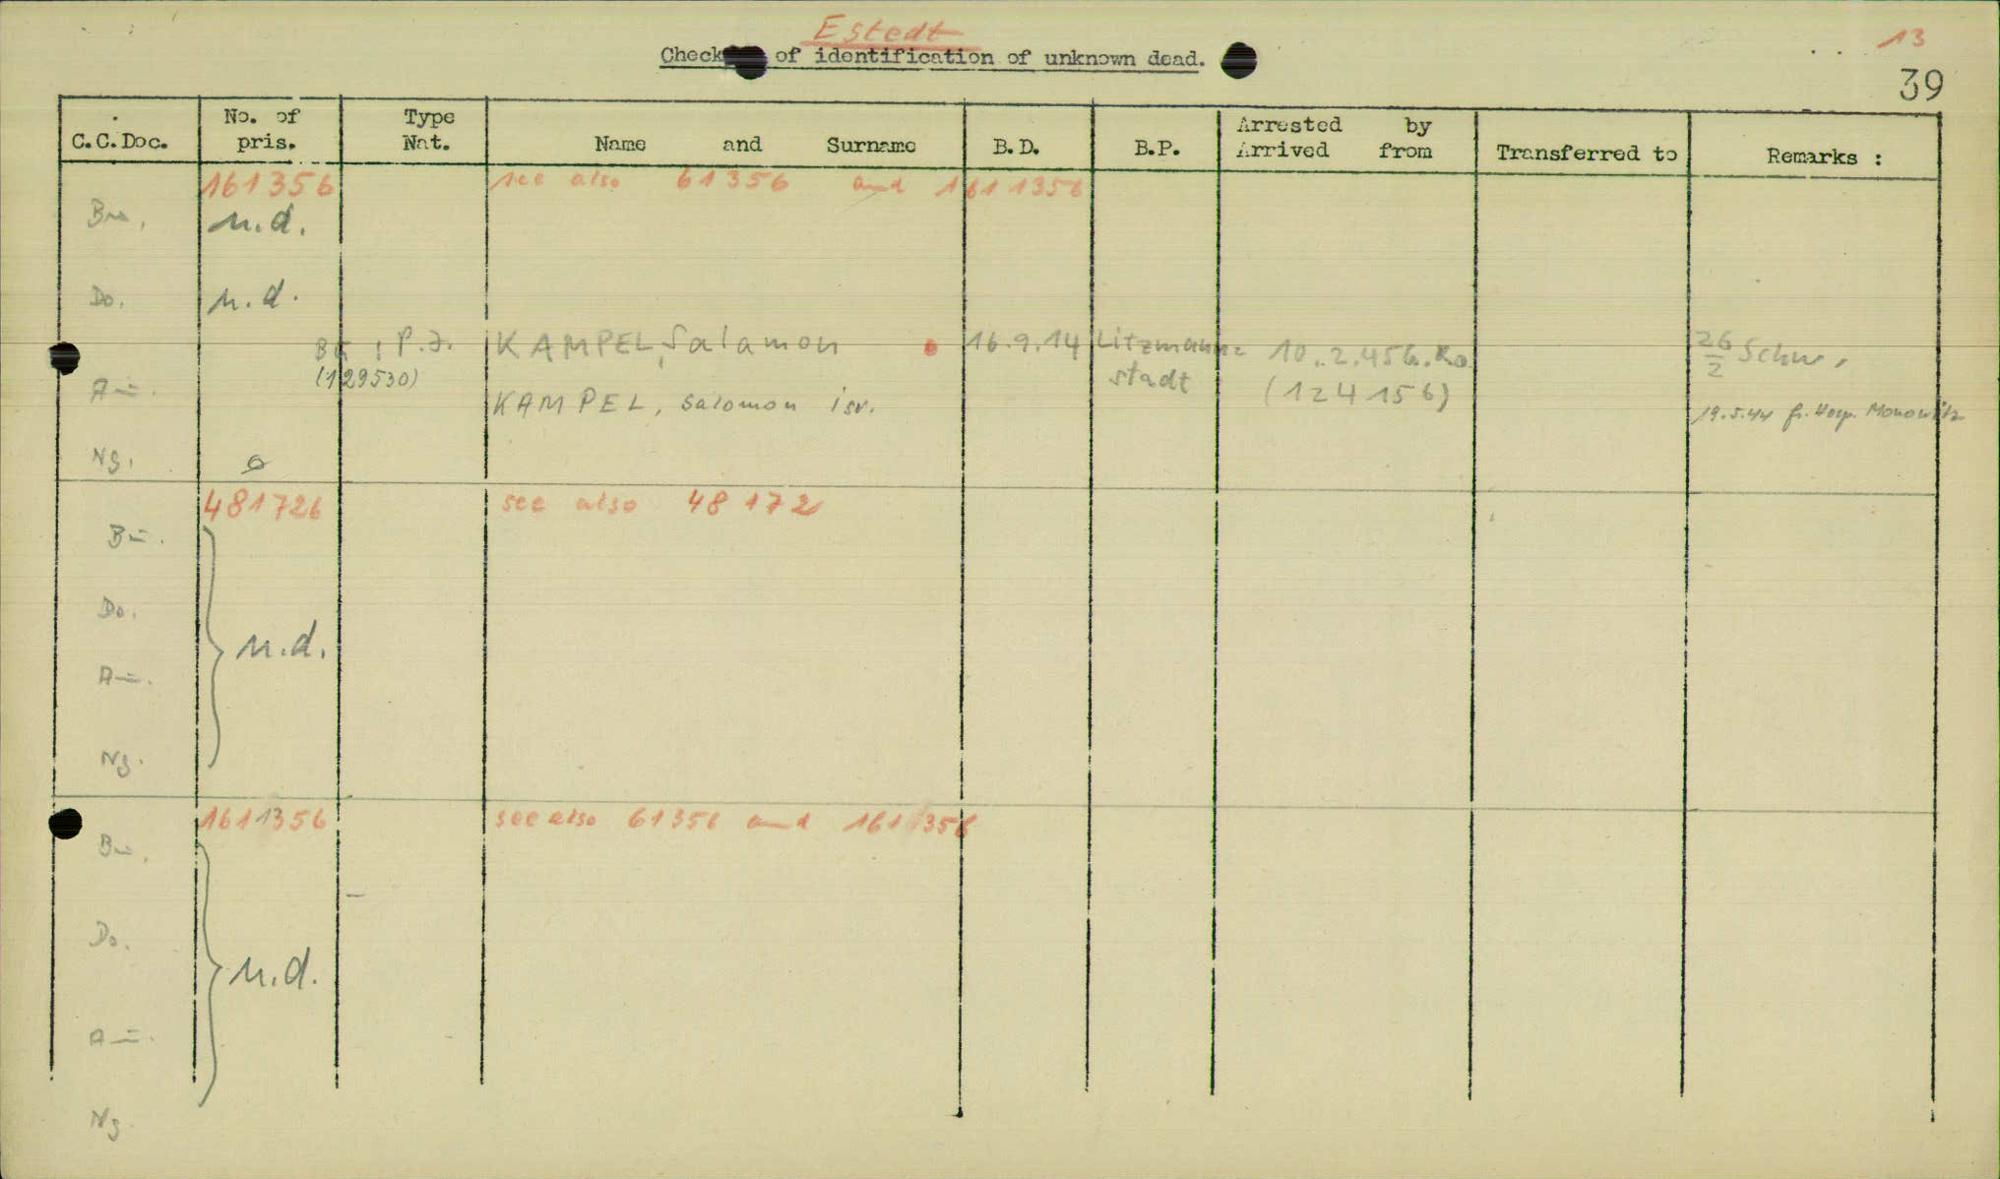 Estedt
13
Check of identification of unknown dead.
39
C.C.Doc. No. of pris. Type Nat. Name and Surname B.D. B.P. Arrested by Arrived from Transferred to Remarks :
161356 see also 61356 and 1611356
n.d.
Do. n.d.
Bu P.J. KAMPEL, Salamon 16.9.14 Litzmann- 10.2.45 26/2 Schw.
(129530) stadt (124156)
A-. KAMPEL, Salomon isr. 19.5.44 fr. Hosp. Monowitz
Ng.
481726 see also 48172
Bu.
Do.
n.d.
A-.
Ng.
1611356 see also 61356 and 161356
Bu.
Do.
n.d.
A-.
Ng.